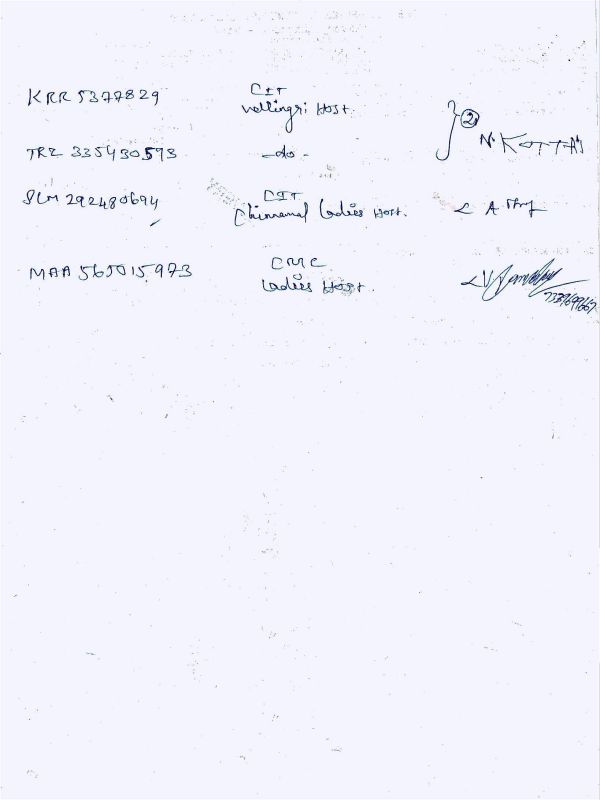 KRR 5377829
CIT
vellingri Host.
2
N. KOTTAI
TRZ 335430593
-do-
SLM 292480694
CIT
Chinnamal Ladies Host.
A.
MAA 565015973
CMC
Ladies Host.